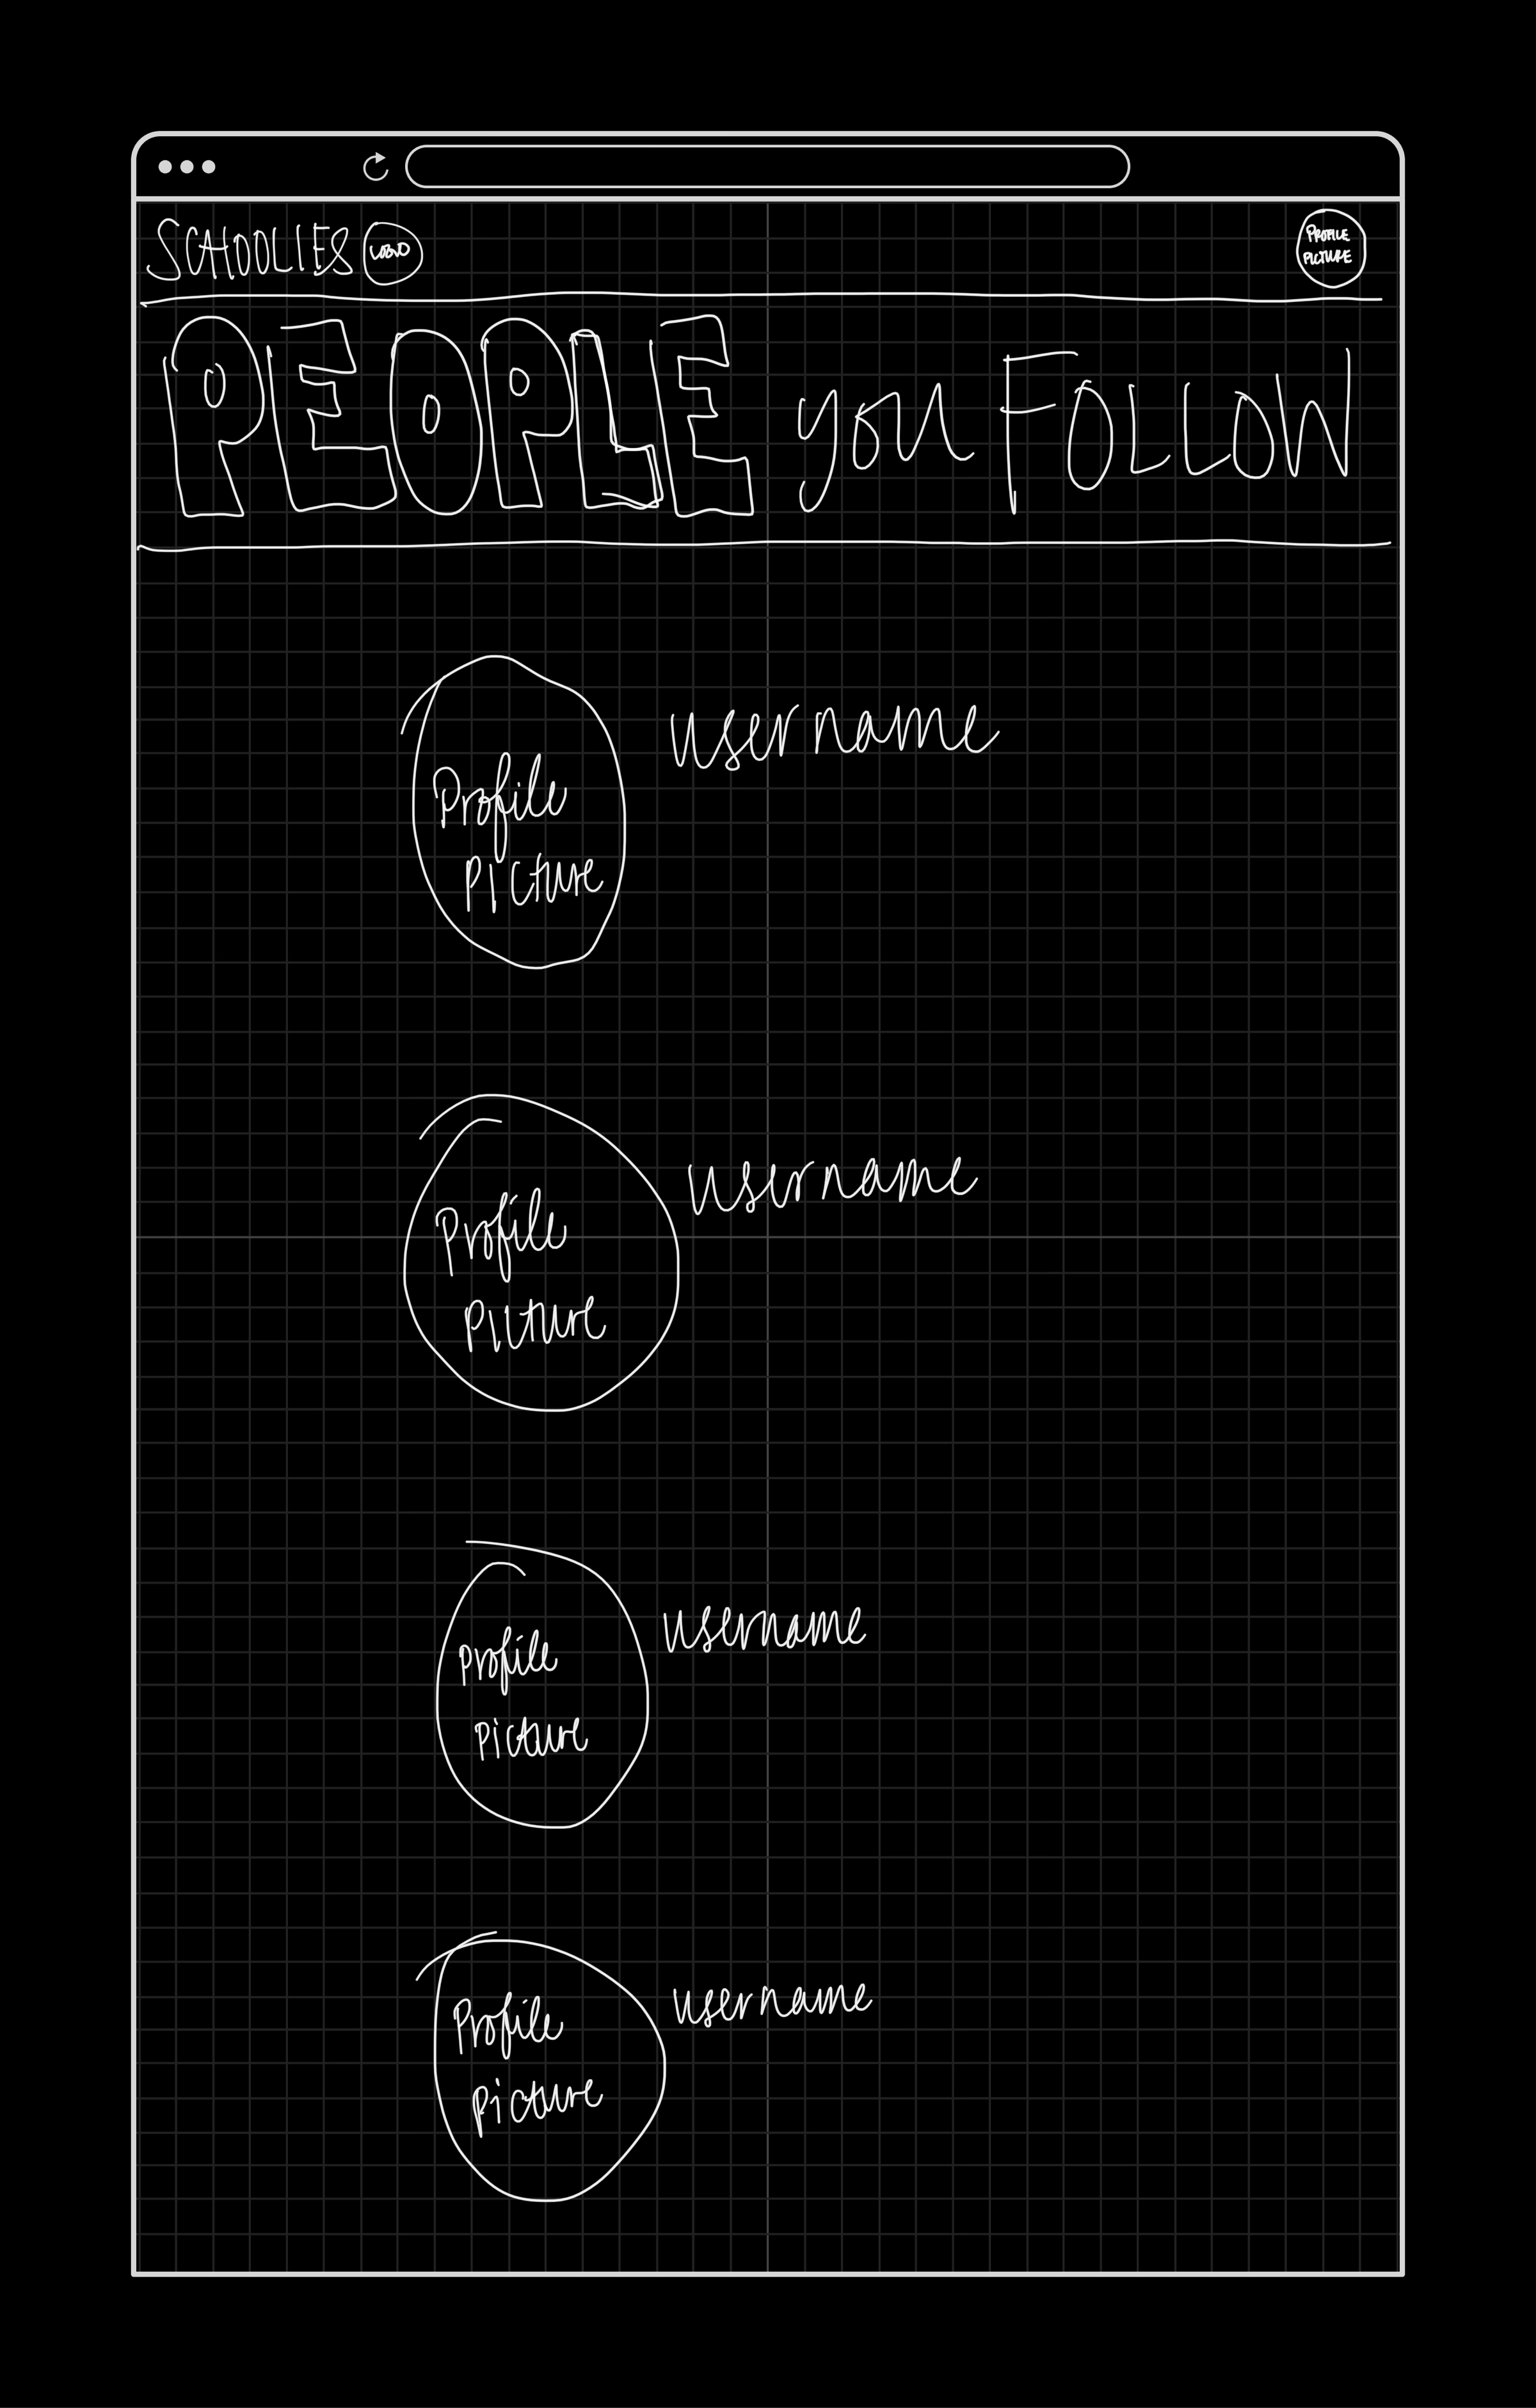 LOGO
PROFILE
PICTURE
PEOPLE you FOLLOW
username
Profile
Picture
username
Profile
Picture
username
profile
picture
username
Profile
picture